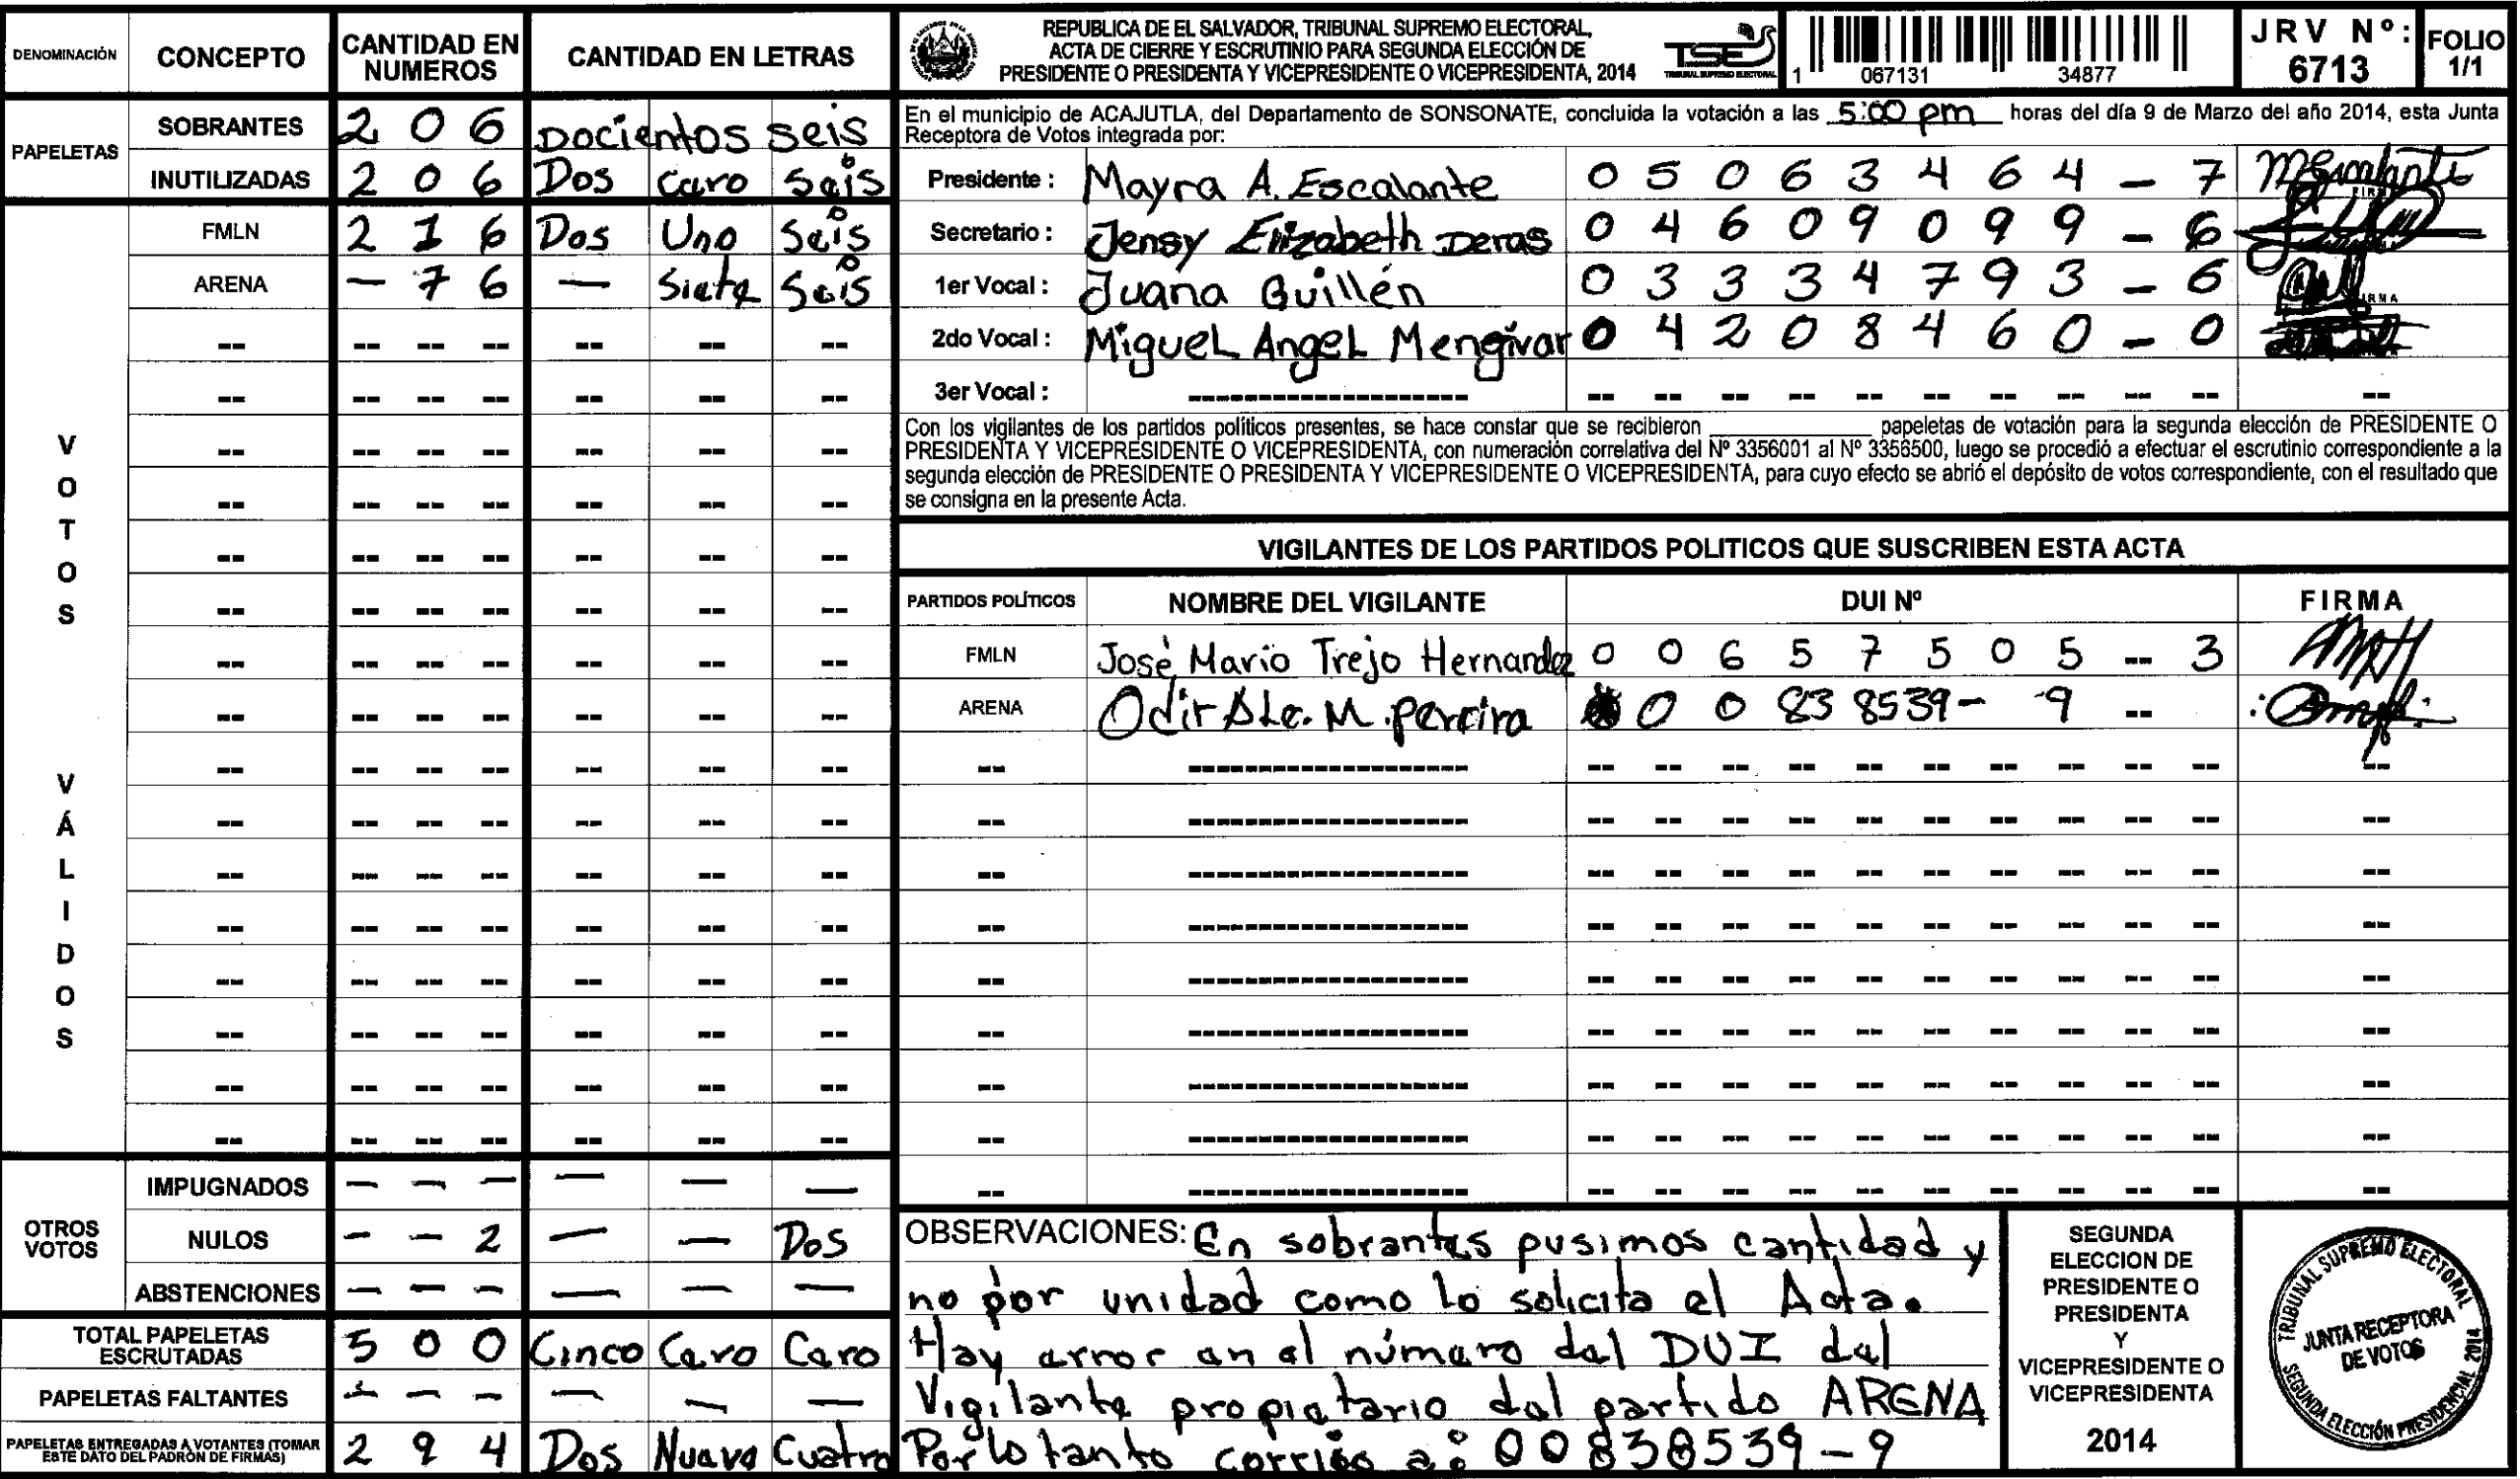 DENOMINACIÓN CONCEPTO CANTIDAD EN NUMEROS CANTIDAD EN LETRAS
PAPELETAS
SOBRANTES 2 0 6 Docientos seis
INUTILIZADAS 2 0 6 Dos Cero Seis
VOTOS VÁLIDOS
FMLN 2 1 6 Dos Uno Seis
ARENA - 7 6 - Siete Seis
OTROS VOTOS
IMPUGNADOS - - - - - -
NULOS - - 2 - - Dos
ABSTENCIONES - - - - - -
TOTAL PAPELETAS ESCRUTADAS 5 0 0 Cinco Cero Cero
PAPELETAS FALTANTES - - - - - -
PAPELETAS ENTREGADAS A VOTANTES (TOMAR ESTE DATO DEL PADRÓN DE FIRMAS) 2 9 4 Dos Nueve Cuatro
REPUBLICA DE EL SALVADOR, TRIBUNAL SUPREMO ELECTORAL,
ACTA DE CIERRE Y ESCRUTINIO PARA SEGUNDA ELECCIÓN DE
PRESIDENTE O PRESIDENTA Y VICEPRESIDENTE O VICEPRESIDENTA, 2014
TSE
TRIBUNAL SUPREMO ELECTORAL
1 067131 34877
JRV Nº: 6713
FOLIO 1/1
En el municipio de ACAJUTLA, del Departamento de SONSONATE, concluida la votación a las 5:00 pm horas del día 9 de Marzo del año 2014, esta Junta
Receptora de Votos integrada por:
Presidente : Mayra A. Escalante 0 5 0 6 3 4 6 4 - 7
Secretario : Jensy Elizabeth Deras 0 4 6 0 9 0 9 9 - 6
1er Vocal : Juana Guillén 0 3 3 3 4 7 9 3 - 6
2do Vocal : Miguel Angel Mengivar 0 4 2 0 8 4 6 0 - 0
3er Vocal :
Con los vigilantes de los partidos políticos presentes, se hace constar que se recibieron ____ papeletas de votación para la segunda elección de PRESIDENTE O
PRESIDENTA Y VICEPRESIDENTE O VICEPRESIDENTA, con numeración correlativa del Nº 3356001 al Nº 3356500, luego se procedió a efectuar el escrutinio correspondiente a la
segunda elección de PRESIDENTE O PRESIDENTA Y VICEPRESIDENTE O VICEPRESIDENTA, para cuyo efecto se abrió el depósito de votos correspondiente, con el resultado que
se consigna en la presente Acta.
VIGILANTES DE LOS PARTIDOS POLITICOS QUE SUSCRIBEN ESTA ACTA
PARTIDOS POLÍTICOS NOMBRE DEL VIGILANTE DUI Nº FIRMA
FMLN José Mario Trejo Hernandez 0 0 6 5 7 5 0 5 - 3
ARENA Odir Ale. M. Pereira 0 0 83 8539- 9
OBSERVACIONES: En sobrantes pusimos cantidad y
no por unidad como lo solicita el Acta.
Hay error en el número del DUI del
Vigilante propietario del partido ARENA
Por lo tanto corrijo a: 00838539-9
SEGUNDA
ELECCION DE
PRESIDENTE O
PRESIDENTA
Y
VICEPRESIDENTE O
VICEPRESIDENTA
2014
TRIBUNAL SUPREMO ELECTORAL
JUNTA RECEPTORA
DE VOTOS
SEGUNDA ELECCIÓN PRESIDENCIAL 2014